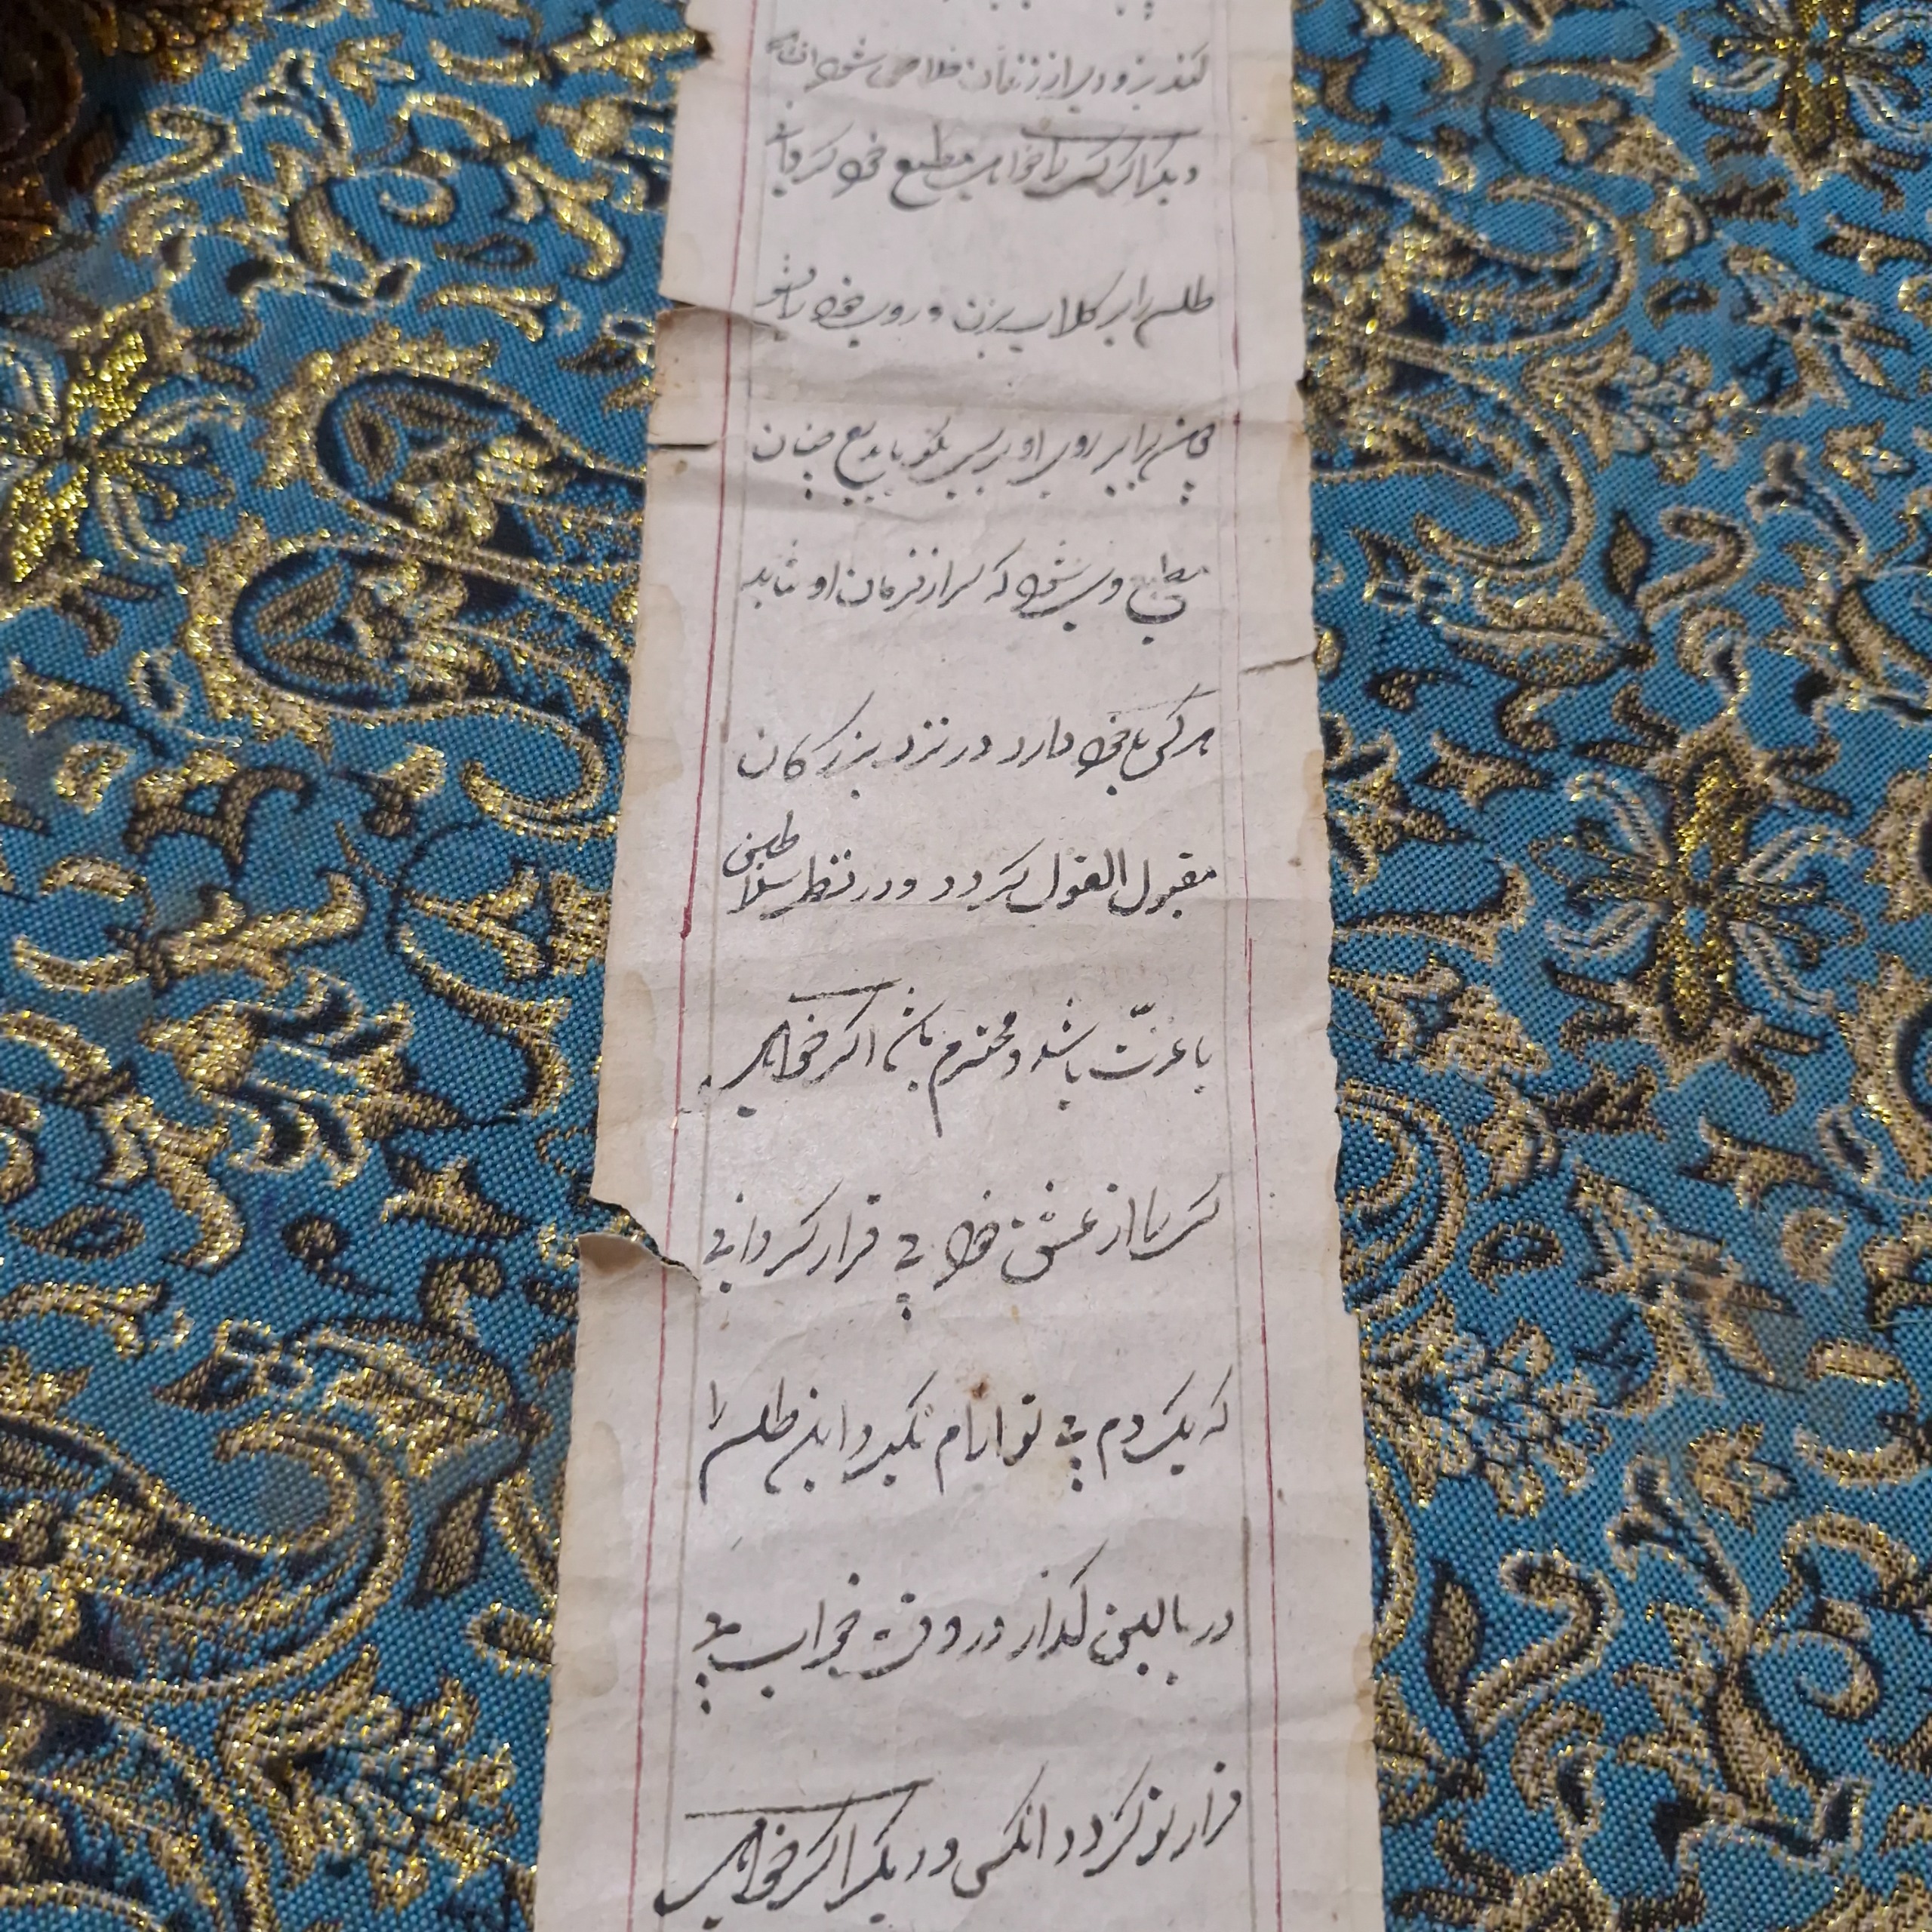 کند بزودی از زندان خلاص شود انشاءالله
دیکر اکر کسی را خواهی مطیع خود کردانی
طلسم را بر کلاب بزن و روی خود را بشو
چون برابر روی او رسی بکو یا بدیع چنان
مطیع وی شود که سر از فرمان او نتابد
هر کس با خود دارد در نزد بزرکان
مقبول القول کردد و در نظر سلاطین
با عزّت باشد و محترم باشد اکر خواهی
کسی را از عشق خود بی قرار کردانی
که یک دم بی تو ارام نکیرد این طلسم را
در بالین کذار در وقت خواب بی
قرار تو کردد انکس و دیکر اکر خواهی